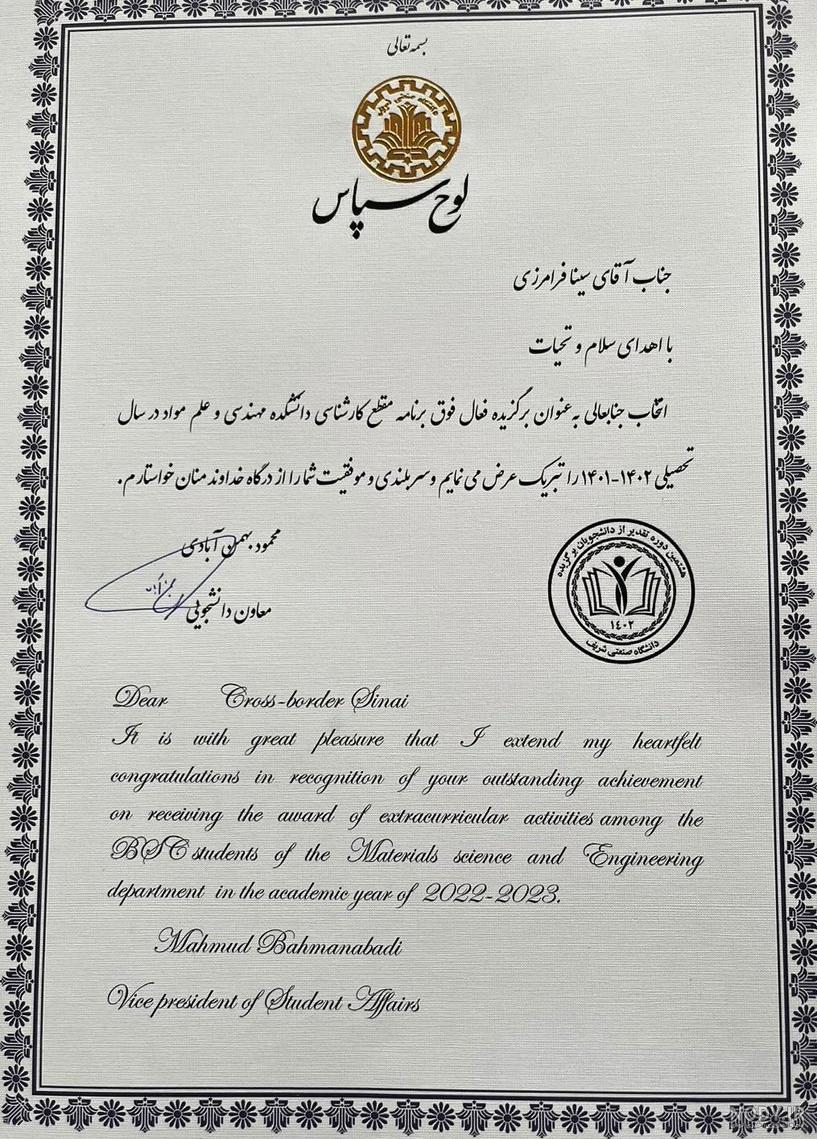 بسمه تعالی
دانشگاه صنعتی شریف
لوح سپاس
جناب آقای سینا فرامرزی
با اهدای سلام و تحیات
انتخاب جنابعالی به عنوان برگزیده فعال فوق برنامه مقطع کارشناسی دانشکده مهندسی و علم مواد در سال
تحصیلی ۱۴۰۲-۱۴۰۱ را تبریک عرض می نمایم و سربلندی و موفقیت شما را از درگاه خداوند منان خواستارم.
محمود بهمن آبادی
معاون دانشجویی
هشتمین دوره تقدیر از دانشجویان برگزیده
۱٤۰۲
دانشگاه صنعتی شریف
Dear Cross-border Sinai
It is with great pleasure that I extend my heartfelt
congratulations in recognition of your outstanding achievement
on receiving the award of extracurricular activities among the
BSC students of the Materials science and Engineering
department in the academic year of 2022-2023.
Mahmud Bahmanabadi
Vice president of Student Affairs